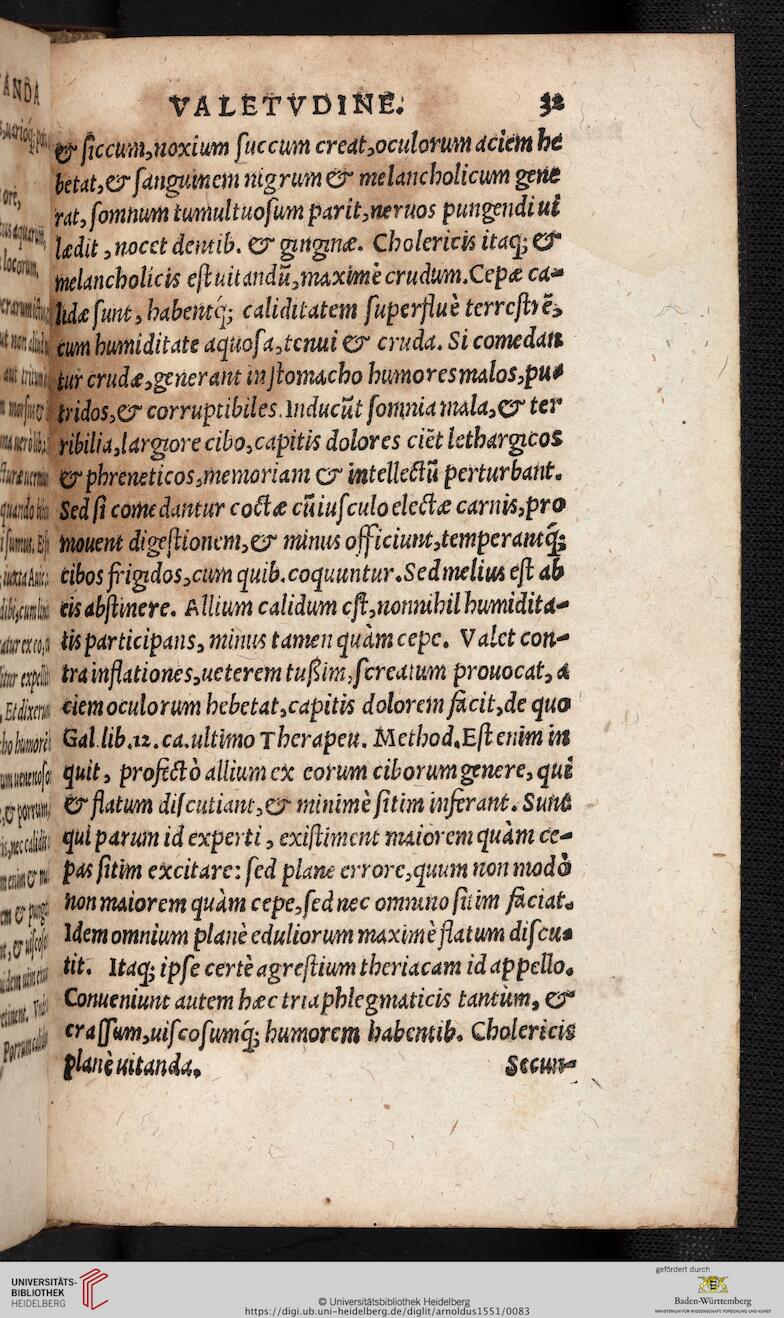 VALETVDINE. 32
& ſiccum, noxium ſuccum creat, oculorum aciem he
betat, & ſanguinem nigrum & melancholicum gene
rat, ſomnum tumultuoſum parit, neruos pungendi ui
lædit, nocet dentib. & ginginæ. Cholericis itaq; &
melancholicis eſt uitandũ, maximè crudum. Cepæ ca-
lidæ ſunt, habentq́; caliditatem ſuperfluè terreſtrẽ,
cum humiditate aquoſa, tenui & cruda. Si comedan
tur crudæ, generant in ſtomacho humores malos, pu-
tridos, & corruptibiles. Inducũt ſomnia mala, & ter
ribilia, largiore cibo, capitis dolores ciẽt lethargicos
& phreneticos, memoriam & intellectũ perturbant.
Sed ſi comedantur coctæ cũ iuſculo electæ carnis, pro
mouent digeſtionem, & minus officiunt, temperantq́;
cibos frigidos, cum quib. coquuntur. Sed melius eſt ab
eis abſtinere. Allium calidum eſt, nonnihil humidita-
tis participans, minus tamen quàm cepe. Valet con-
tra inflationes, ueterem tußim, ſcreatum prouocat, a
ciem oculorum hebetat, capitis dolorem facit, de quo
Gal. lib. 12. ca. ultimo Therapeu. Method. Eſt enim in
quit, profectò allium ex eorum ciborum genere, qui
& flatum diſcutiant, & minimè ſitim inferant. Sunt
qui parum id experti, exiſtiment maiorem quàm ce-
pas ſitim excitare: ſed plane errore, quum non modò
non maiorem quàm cepe, ſed nec omnino ſitim faciat.
Idem omnium planè eduliorum maximè flatum diſcu-
tit. Itaq; ipſe certè agreſtium theriacam id appello.
Conueniunt autem hæc tria phlegmaticis tantùm, &
craſſum, uiſcoſumq́; humorem habentib. Cholericis
planè uitanda.
Secun-
UNIVERSITÄTS-
BIBLIOTHEK
HEIDELBERG
© Universitätsbibliothek Heidelberg
https://digi.ub.uni-heidelberg.de/diglit/arnoldus1551/0083
gefördert durch
Baden-Württemberg
MINISTERIUM FÜR WISSENSCHAFT, FORSCHUNG UND KUNST